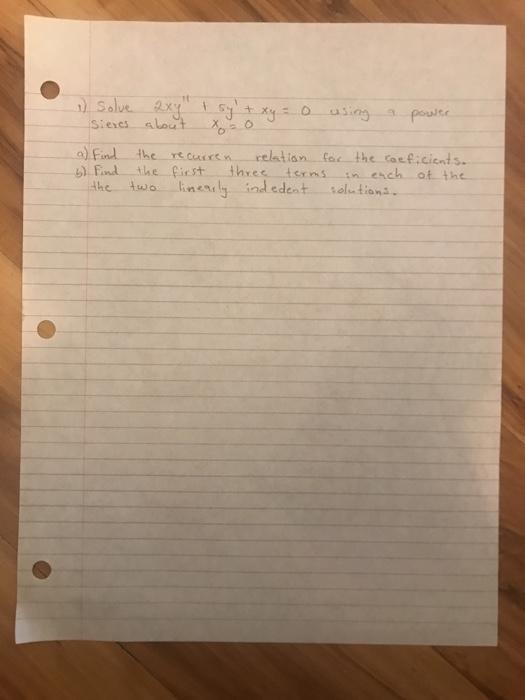 1) Solve 2xy" + 5y' + xy = 0 using a power
sieres about x₀ = 0
a) Find the recurren relation for the coeficients.
b) Find the first three terms in each of the
the two linearly indedent solutions.